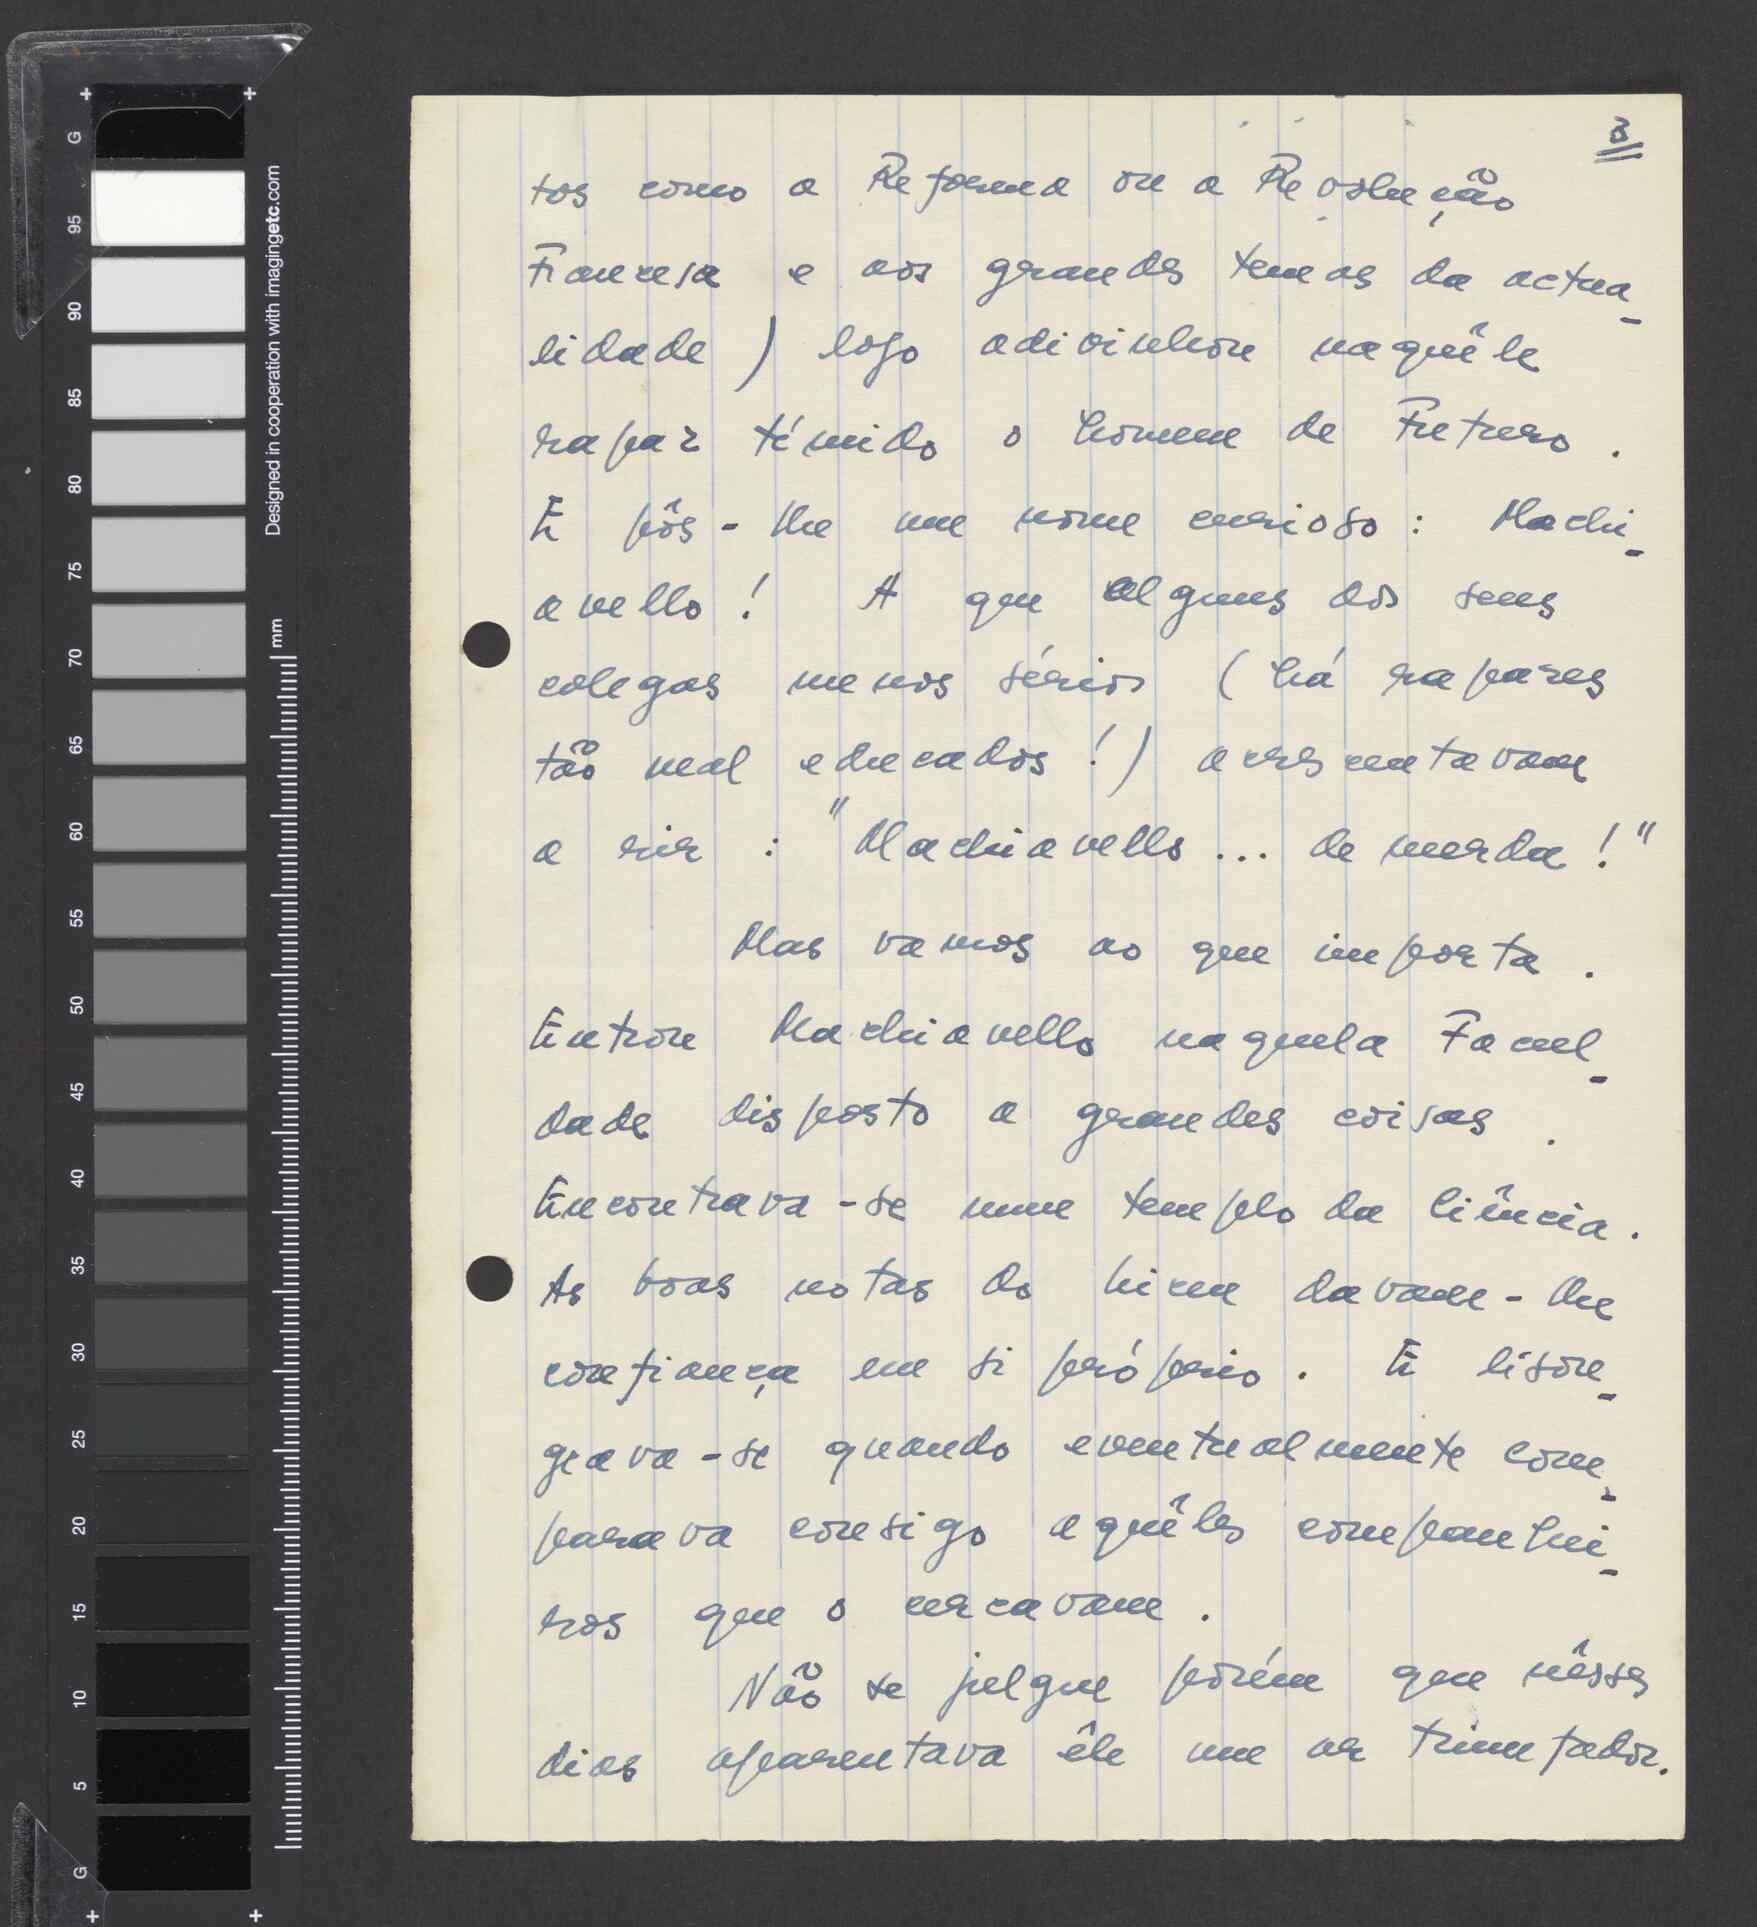 3
tos como a Reforma ou a Revolução
Francesa e aos grandes temas da actua-
lidade) logo adivinhou naquêle
rapaz tímido o homem de Futuro.
E pôs-lhe um nome curioso: Machi-
avello! A que alguns dos seus
colegas menos sérios (há rapazes
tão mal educados!) acrescentavam
a rir: "Machiavello... de merda!"
Mas vamos ao que importa.
Entrou Machiavello naquela Facul-
dade disposto a grandes coisas.
Encontrava-se num templo da Ciência.
As boas notas do liceu davam-lhe
confiança em si próprio. E lison-
geava-se quando eventualmente com-
parava consigo aquêles companhei-
ros que o cercavam.
Não se julgue porém que nêsses
dias aparentava êle um ar triunfador.
G
95
90
85
80
75
70
65
60
55
50
45
40
35
30
25
20
15
10
5
G
Designed in cooperation with imagingetc.com
mm